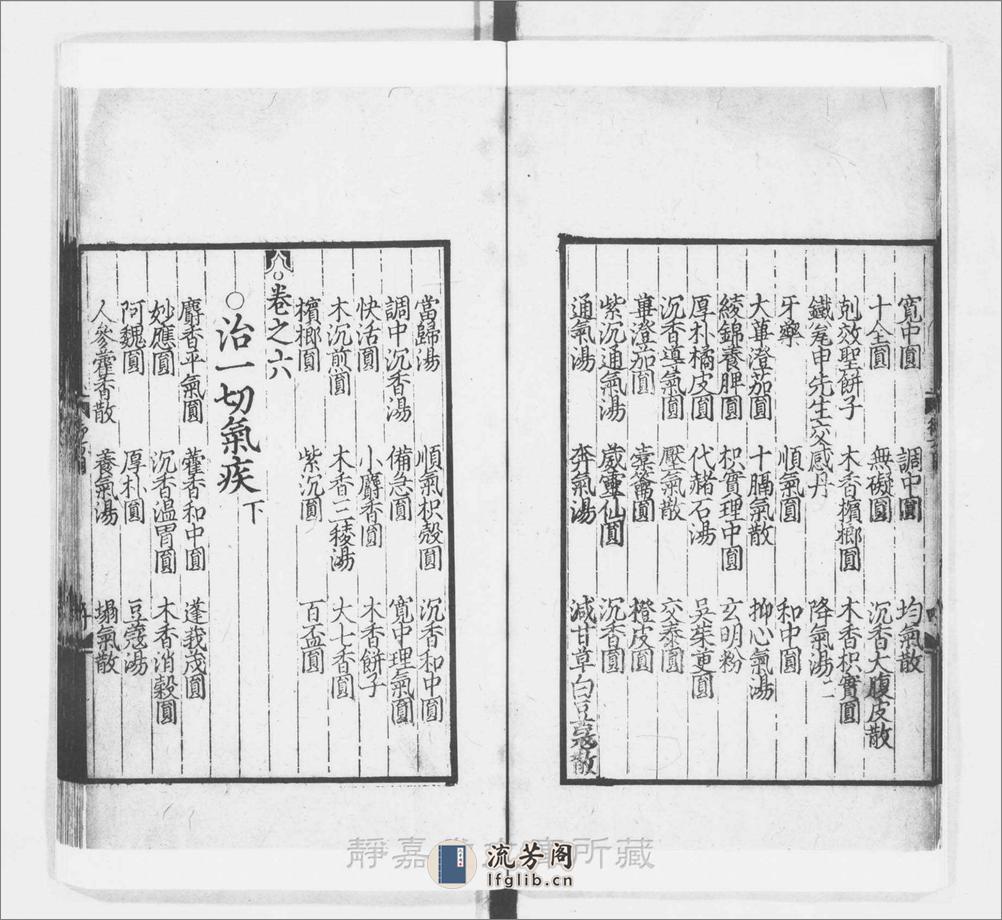 寬中圓 調中圓 均氣散
十全圓 無礙圓 沉香大腹皮散
剋效聖餅子 木香檳榔圓 木香枳實圓
鐵瓮申先生交感丹 降氣湯二
牙藥 順氣圓 和中圓
大蓽澄茄圓 十膈氣散 抑心氣湯
綾錦養脾圓 枳實理中圓 玄明粉
厚朴橘皮圓 代赭石湯 吳茱萸圓
沉香導氣圓 壓氣散 交泰圓
蓽澄茄圓 橙皮圓
紫沉通氣湯 威靈仙圓 沉香圓
通氣湯 奔氣湯 減甘草白豆蔻散
當歸湯 順氣枳殼圓 沉香和中圓
調中沉香湯 備急圓 寬中理氣圓
快活圓 小麝香圓 木香餅子
木沉煎圓 木香三稜湯 大七香圓
檳榔圓 紫沉圓 百盃圓
卷之六
○治一切氣疾下
麝香平氣圓 藿香和中圓 蓬莪茂圓
妙應圓 沉香溫胃圓 木香消穀圓
阿魏圓 厚朴圓 豆蔻湯
人參藿香散 養氣湯 塌氣散
靜嘉堂文庫所藏
流芳阁
lfglib.cn